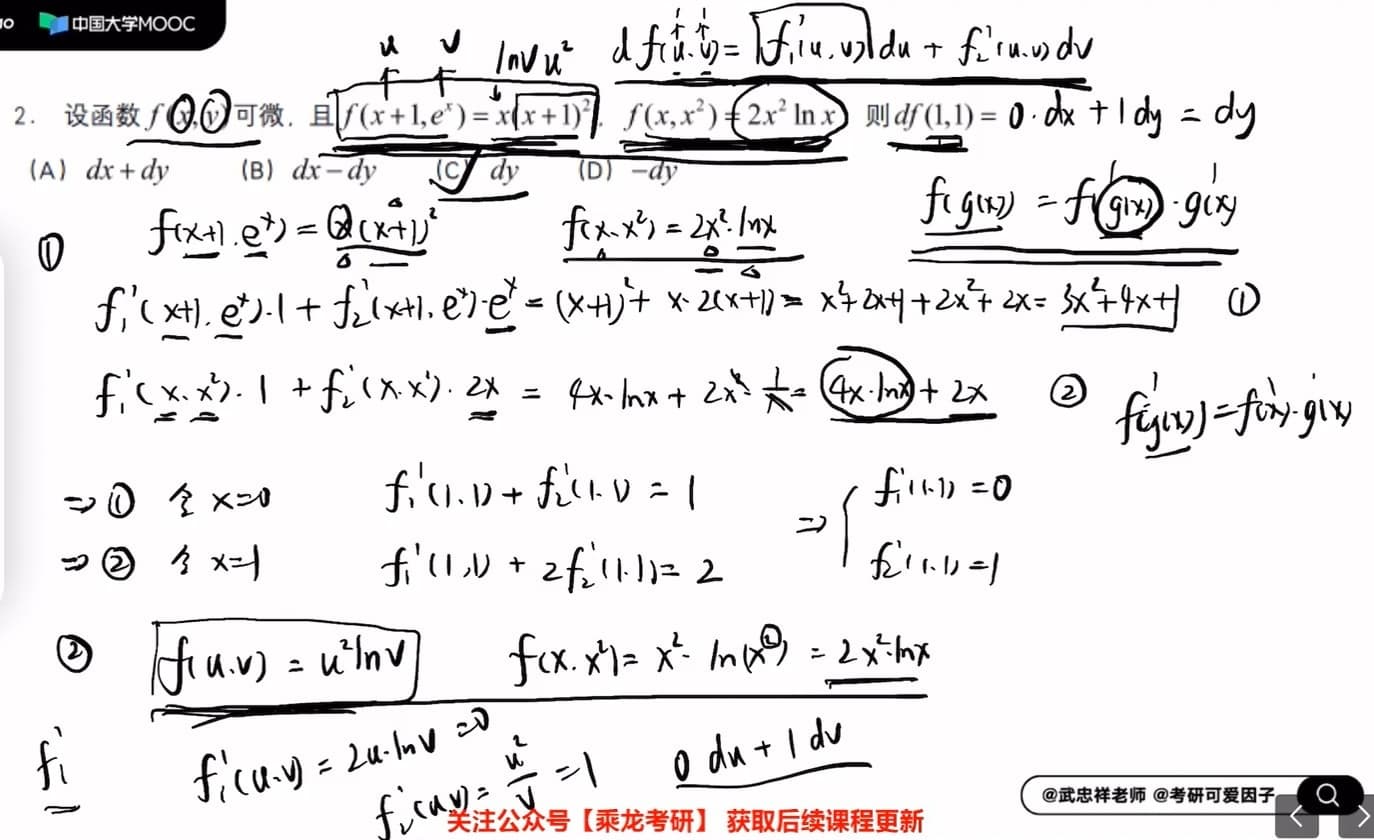 中国大学MOOC
u v lnv u² d f(u.v)= f₁'(u.v) du + f₂'(u.v) dv
2. 设函数 f(x,y) 可微, 且 f(x+1,eˣ)=x(x+1)², f(x,x²)=2x² ln x, 则 df(1,1)= 0·dx + 1dy = dy
(A) dx+dy (B) dx−dy (C) dy (D) −dy
① f(x+1.eˣ)=x(x+1)² f(x.x²)=2x²·lnx f(g(x))'=f'(g(x))·g'(x)
f₁'(x+1.eˣ)·1+f₂'(x+1.eˣ)·eˣ=(x+1)²+x·2(x+1)=x²+2x+1+2x²+2x=3x²+4x+1 ①
f₁'(x.x²)·1+f₂'(x.x²)·2x=4x·lnx+2x²·1/x=4x·lnx+2x ②
⇒① 令 x=0 f₁'(1.1)+f₂'(1.1)=1 ⇒ { f₁'(1.1)=0
⇒② 令 x=1 f₁'(1,1)+2f₂'(1.1)=2 f₂'(1.1)=1
② f(u.v)=u²lnv f(x.x²)=x²·ln(x²)=2x²·lnx
f₁' f₁'(u.v)=2u·lnv=0
f₂'(u.v)=u²/v=1 0 du+1 dv
@武忠祥老师 @考研可爱因子
关注公众号【乘龙考研】 获取后续课程更新